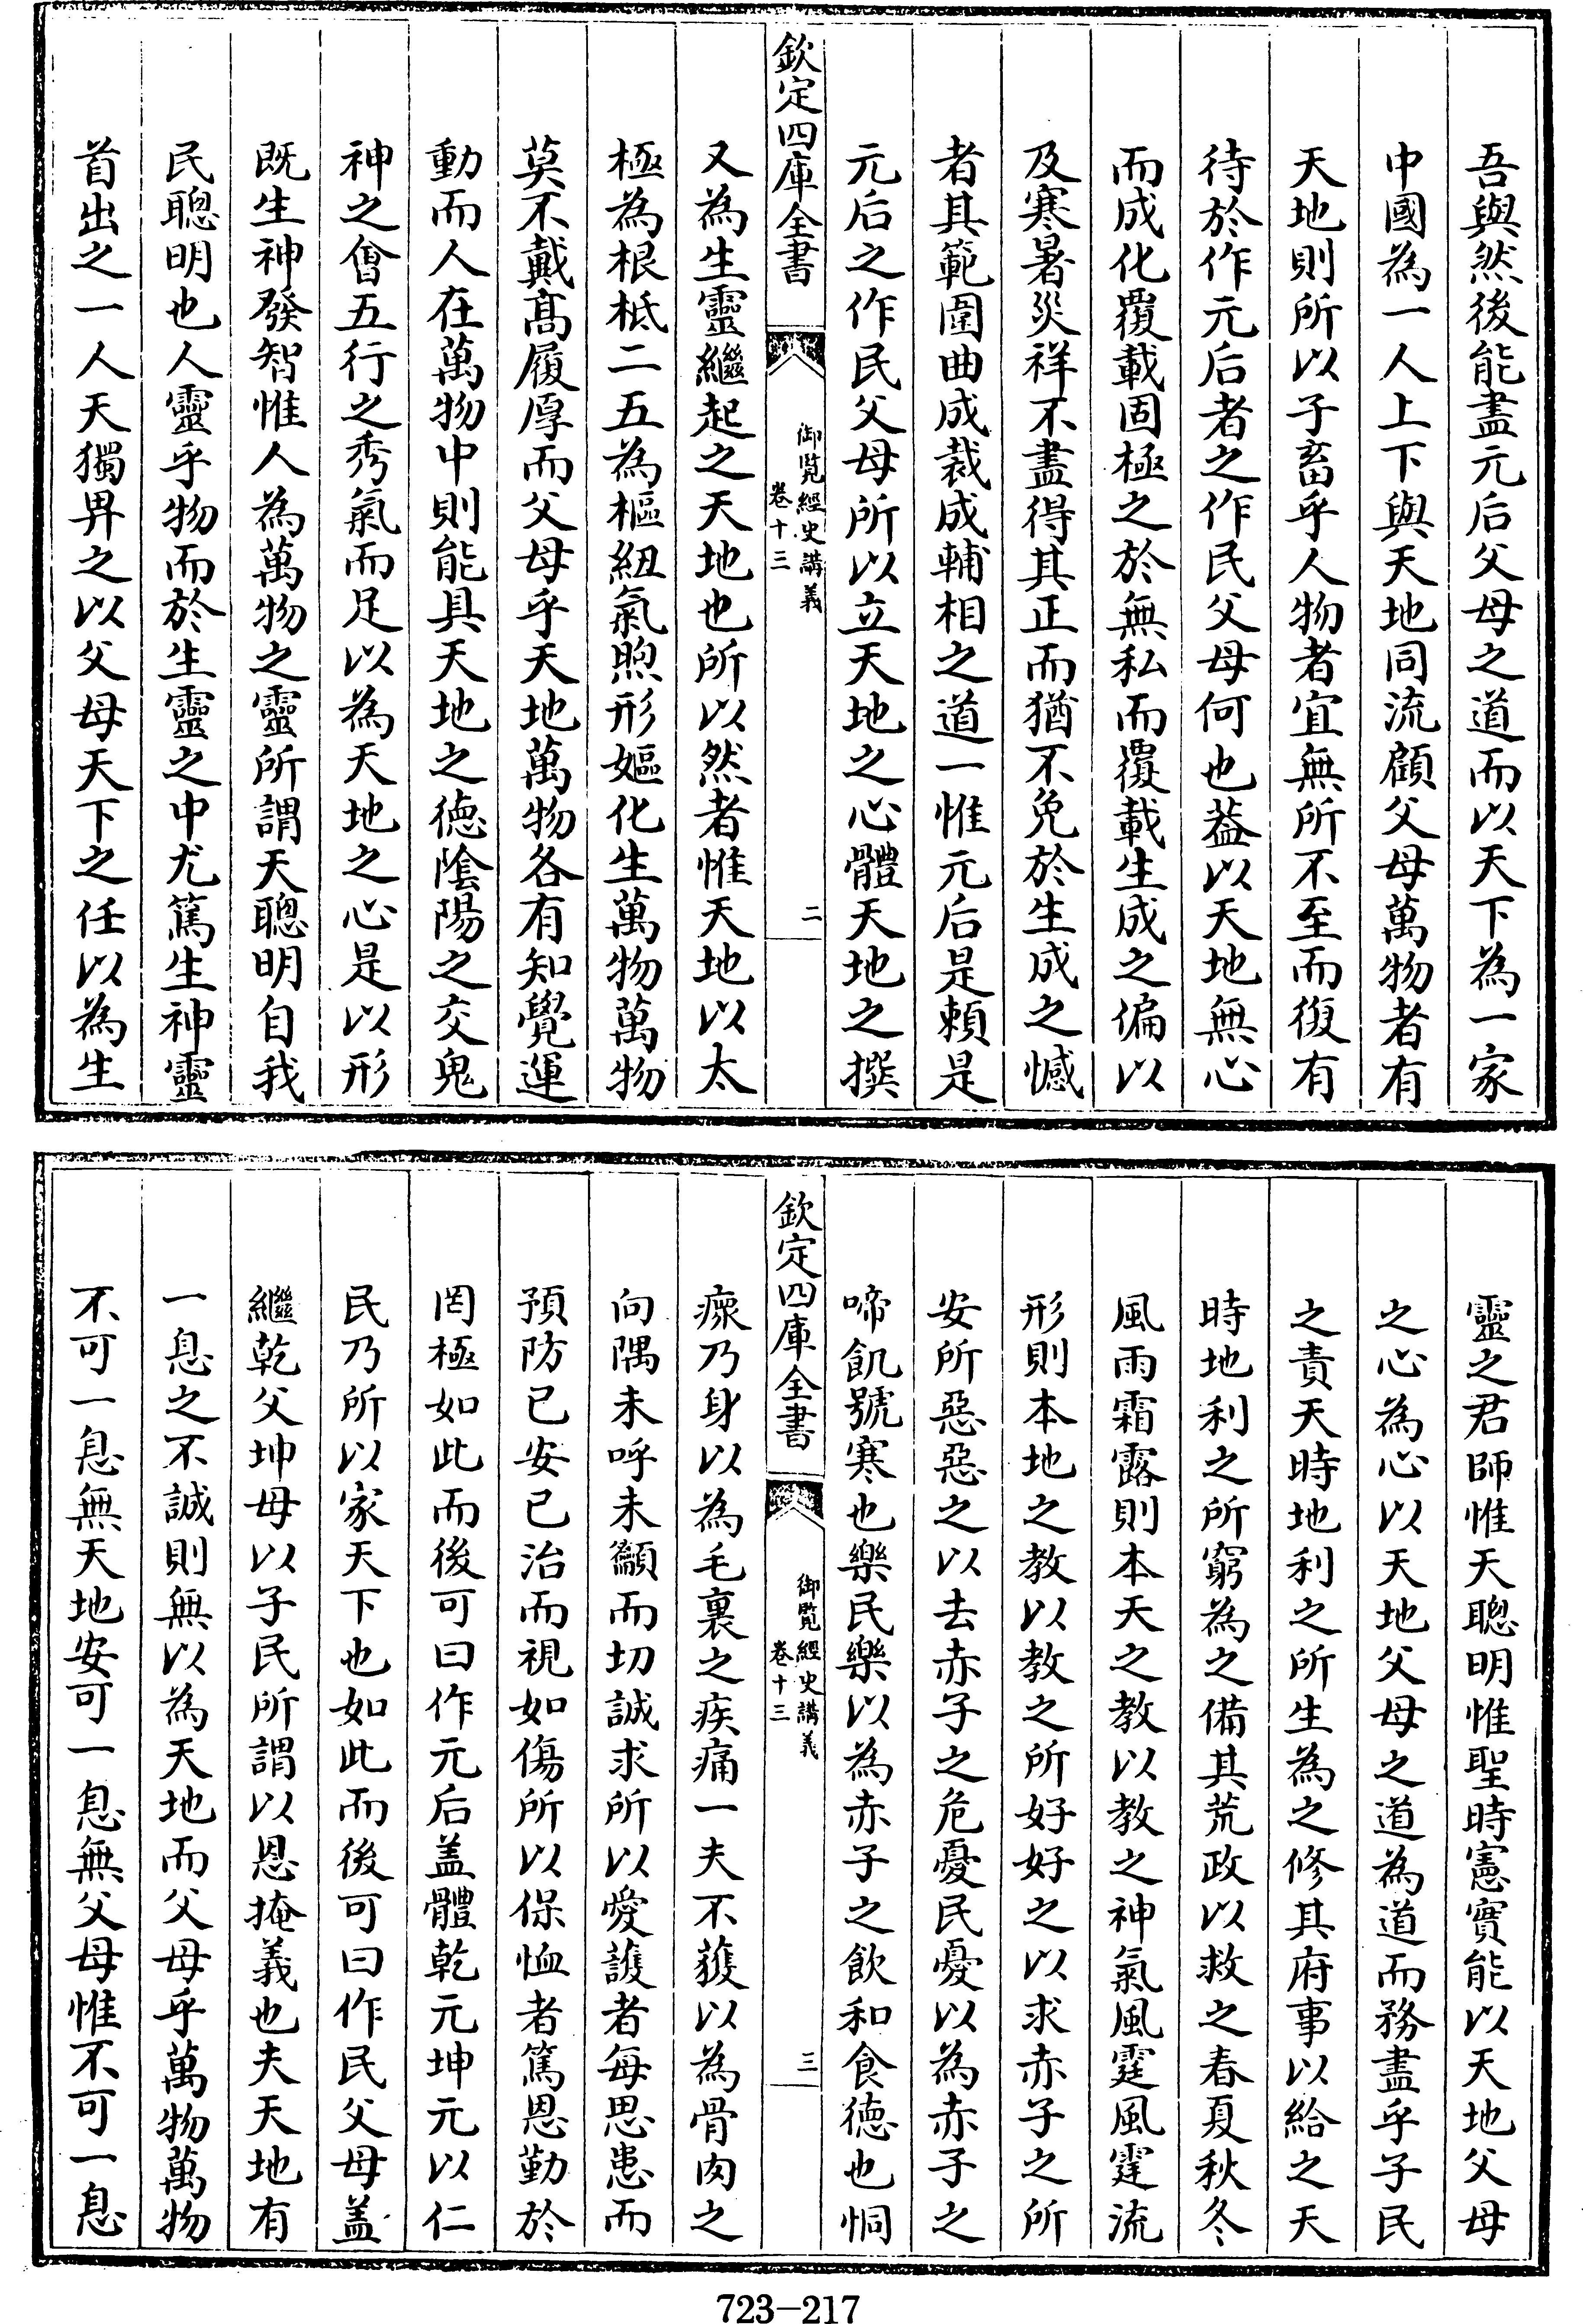 吾與然後能盡元后父母之道而以天下為一家
中國為一人上下與天地同流顧父母萬物者有
天地則所以子畜乎人物者宜無所不至而復有
待於作元后者之作民父母何也葢以天地無心
而成化覆載固極之於無私而覆載生成之偏以
及寒暑災祥不盡得其正而猶不免於生成之憾
者其範圍曲成裁成輔相之道一惟元后是頼是
元后之作民父母所以立天地之心體天地之撰
欽定四庫全書
御覧經史講義
卷十三
二
又為生靈繼起之天地也所以然者惟天地以太
極為根柢二五為樞紐氣煦形嫗化生萬物萬物
莫不戴髙履厚而父母乎天地萬物各有知覺運
動而人在萬物中則能具天地之德陰陽之交鬼
神之會五行之秀氣而足以為天地之心是以形
既生神發智惟人為萬物之靈所謂天聰明自我
民聰明也人靈乎物而於生靈之中尤篤生神靈
首出之一人天獨畀之以父母天下之任以為生
靈之君師惟天聰明惟聖時憲實能以天地父母
之心為心以天地父母之道為道而務盡乎子民
之責天時地利之所生為之修其府事以給之天
時地利之所窮為之備其荒政以救之春夏秋冬
風雨霜露則本天之教以教之神氣風霆風霆流
形則本地之教以教之所好好之以求赤子之所
安所惡惡之以去赤子之危憂民憂以為赤子之
啼飢號寒也樂民樂以為赤子之飲和食德也恫
欽定四庫全書
御覧經史講義
卷十三
三
瘝乃身以為毛裏之疾痛一夫不獲以為骨肉之
向隅未呼未籲而切誠求所以愛護者每思患而
預防已安已治而視如傷所以保恤者篤恩勤於
罔極如此而後可曰作元后盖體乾元坤元以仁
民乃所以家天下也如此而後可曰作民父母盖
繼乾父坤母以子民所謂以恩掩義也夫天地有
一息之不誠則無以為天地而父母乎萬物萬物
不可一息無天地安可一息無父母惟不可一息
723-217